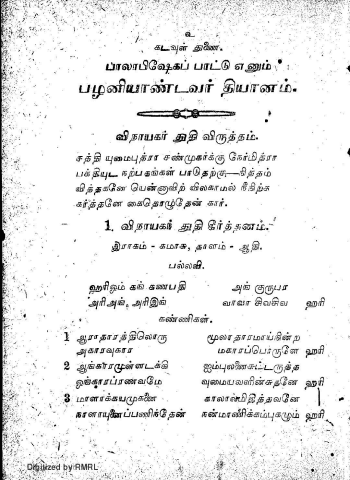 உ
கடவுள் துணை.
பாலாபிஷேகப் பாட்டு எனும்
பழனியாண்டவர் தியானம்.
விநாயகர் துதி விருத்தம்.
சத்தி யுமைபுத்ரா சண்முகர்க்கு நேர்மித்ரா
பக்தியுட கற்பதங்கள் பாடுதற்கு—நித்தம்
வித்தகனே யென்னாவிற் விலகாமல் நீநிற்க
கர்த்தனே கைதொழுதேன் கார்.
1. விநாயகர் துதி கீர்த்தனம்.
இராகம் - கமாசு, தாளம் - ஆதி.
பல்லவி.
ஹரிஓம் கல் கணபதி அங் குருபர
அரிஅல் அரிஇல் வாவா சிவசிவ ஹரி
கண்ணிகள்.
1 ஆராதாரத்திலொரு மூலாதாரமாய்நின்ற
அகாரவுகார மகாரப்பொருளே ஹரி
2 ஆங்காரமுள்ளடக்கி ஐம்புலனைசுட்டருத்த
ஓங்காரப்ரணவமே வுமைபவளின்சுதனே ஹரி
3 மாளாக்கயமுகனை காலால்மிதித்தவனே
தாளாயுனைப்பணிந்தேன் நன்மாணிக்கம்புகழும் ஹரி
Digitized by RMRL